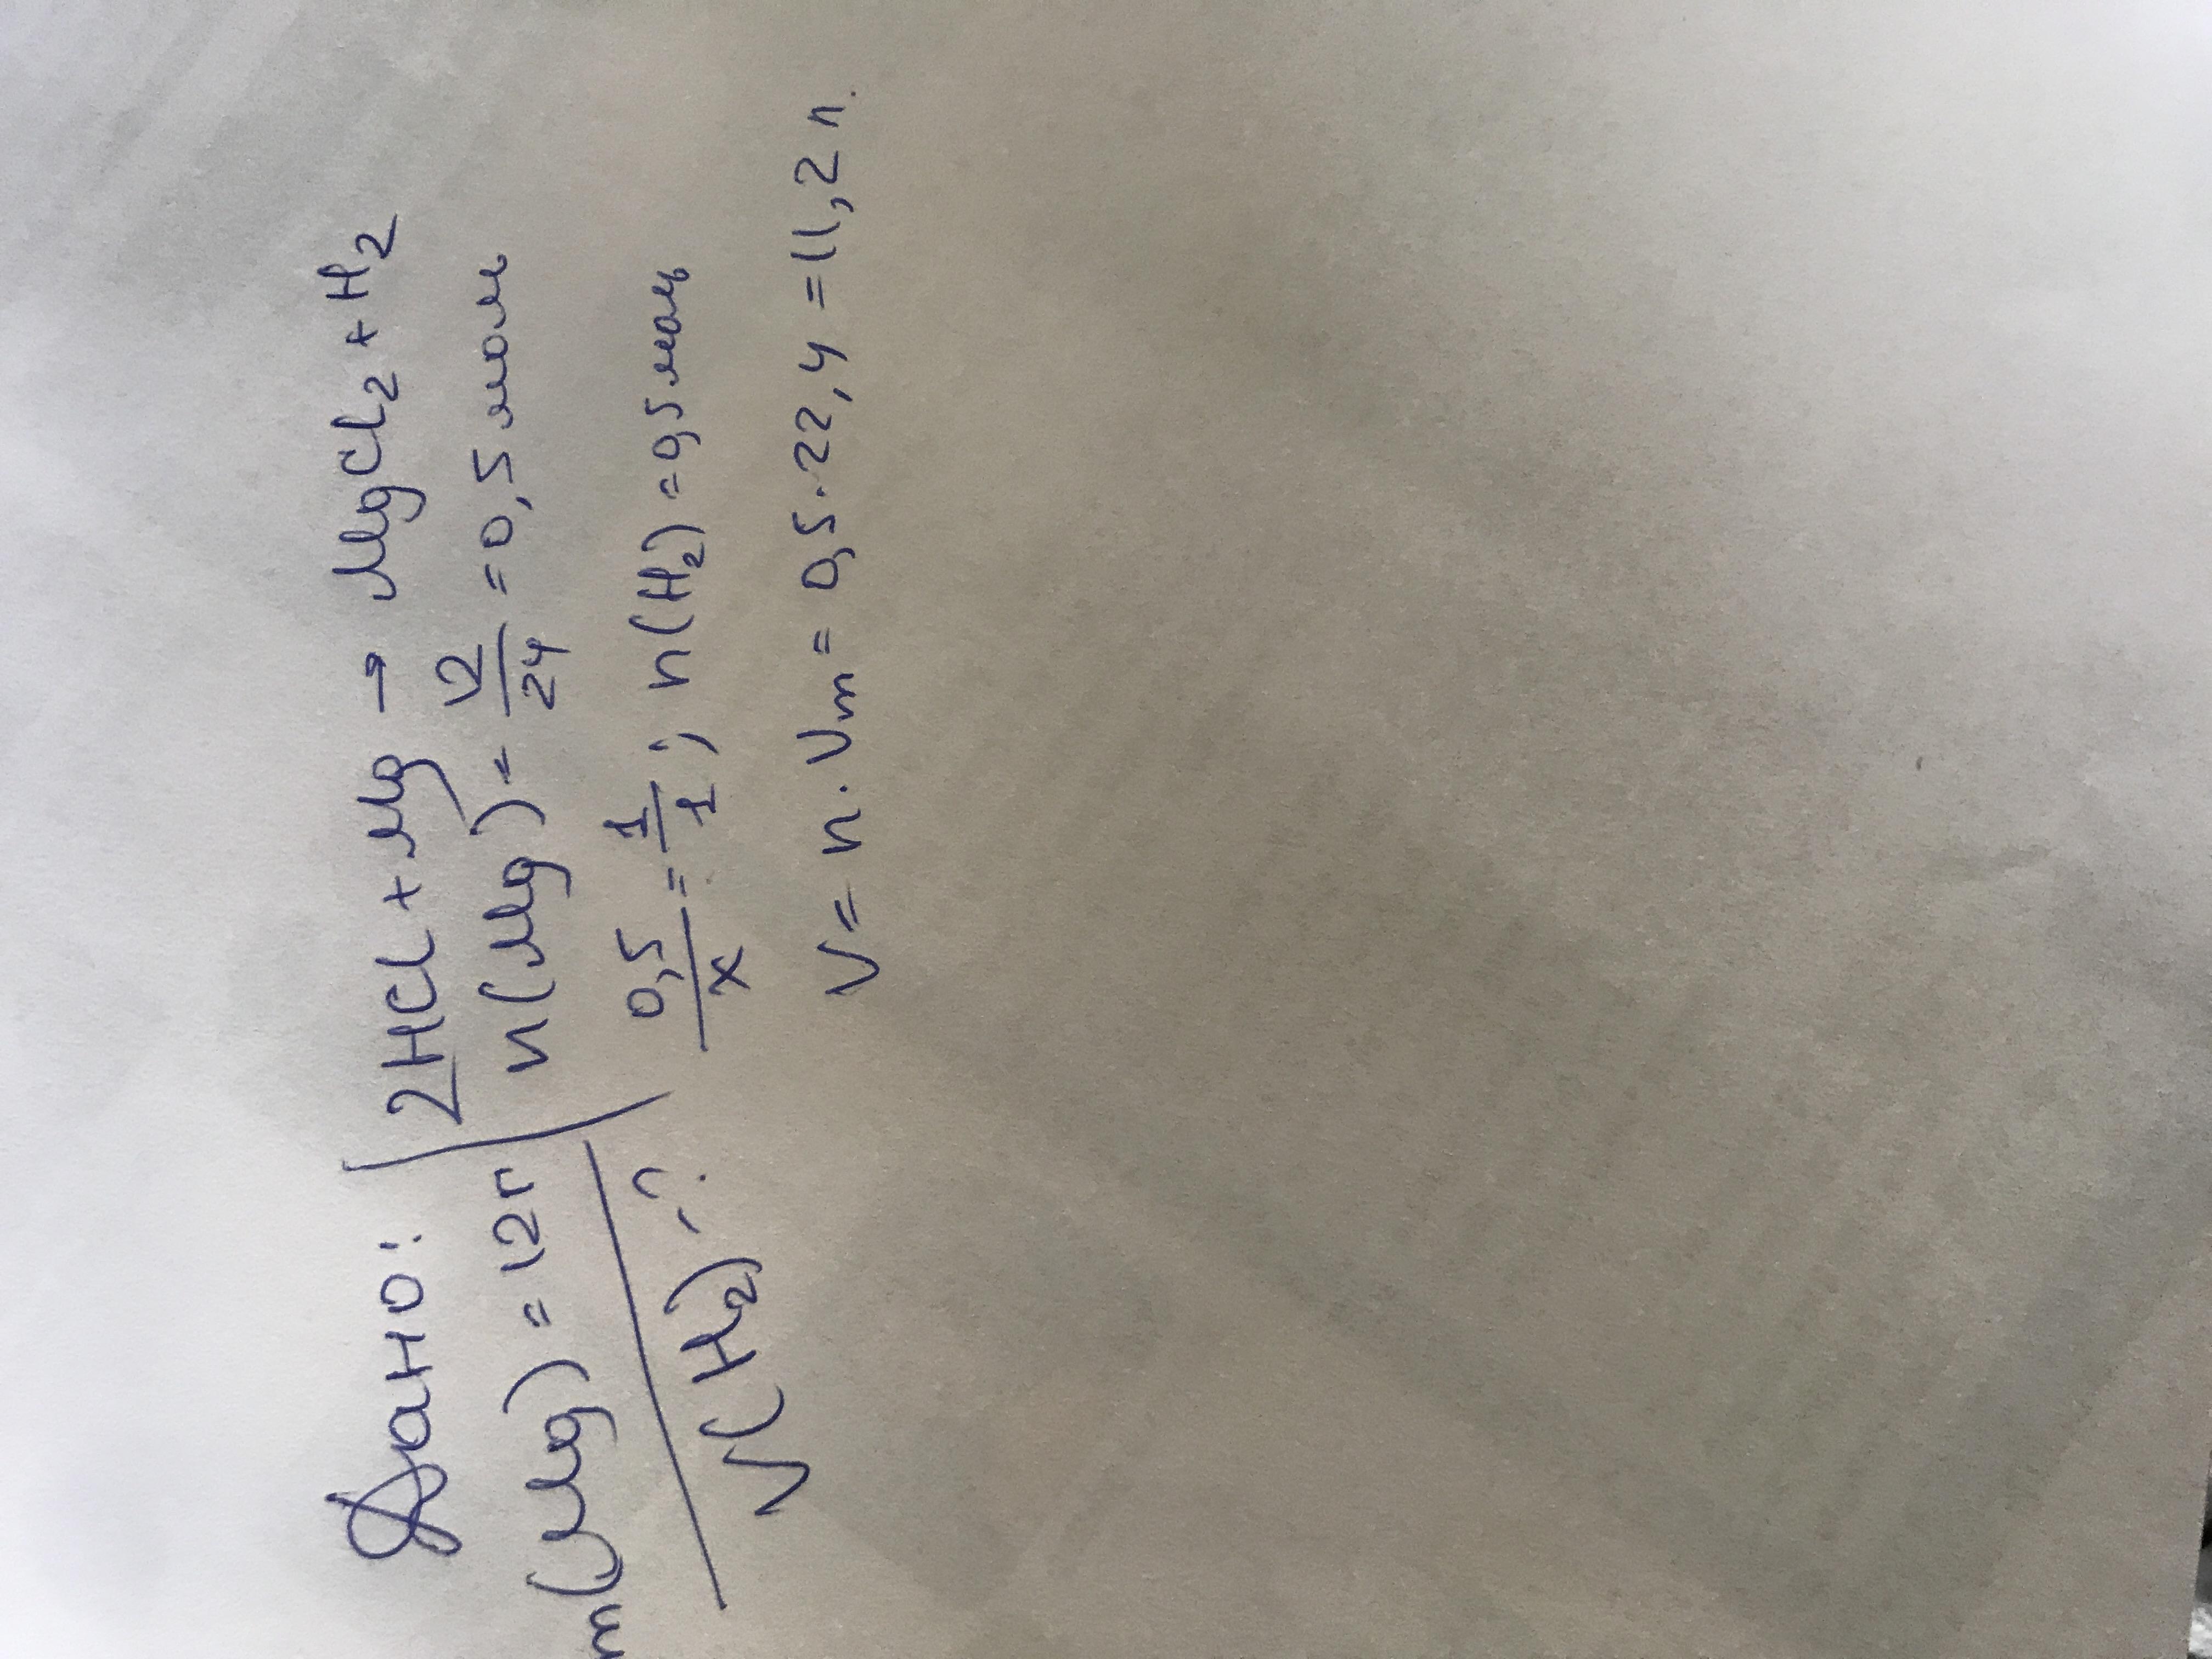 Дано:
m(Mg) = 12г
V(H₂) - ?
2HCl + Mg → MgCl₂ + H₂
n(Mg) = 12/24 = 0,5 моль
0,5/x = 1/1; n(H₂) = 0,5 моль
V = n · Vm = 0,5 · 22,4 = 11,2 л.